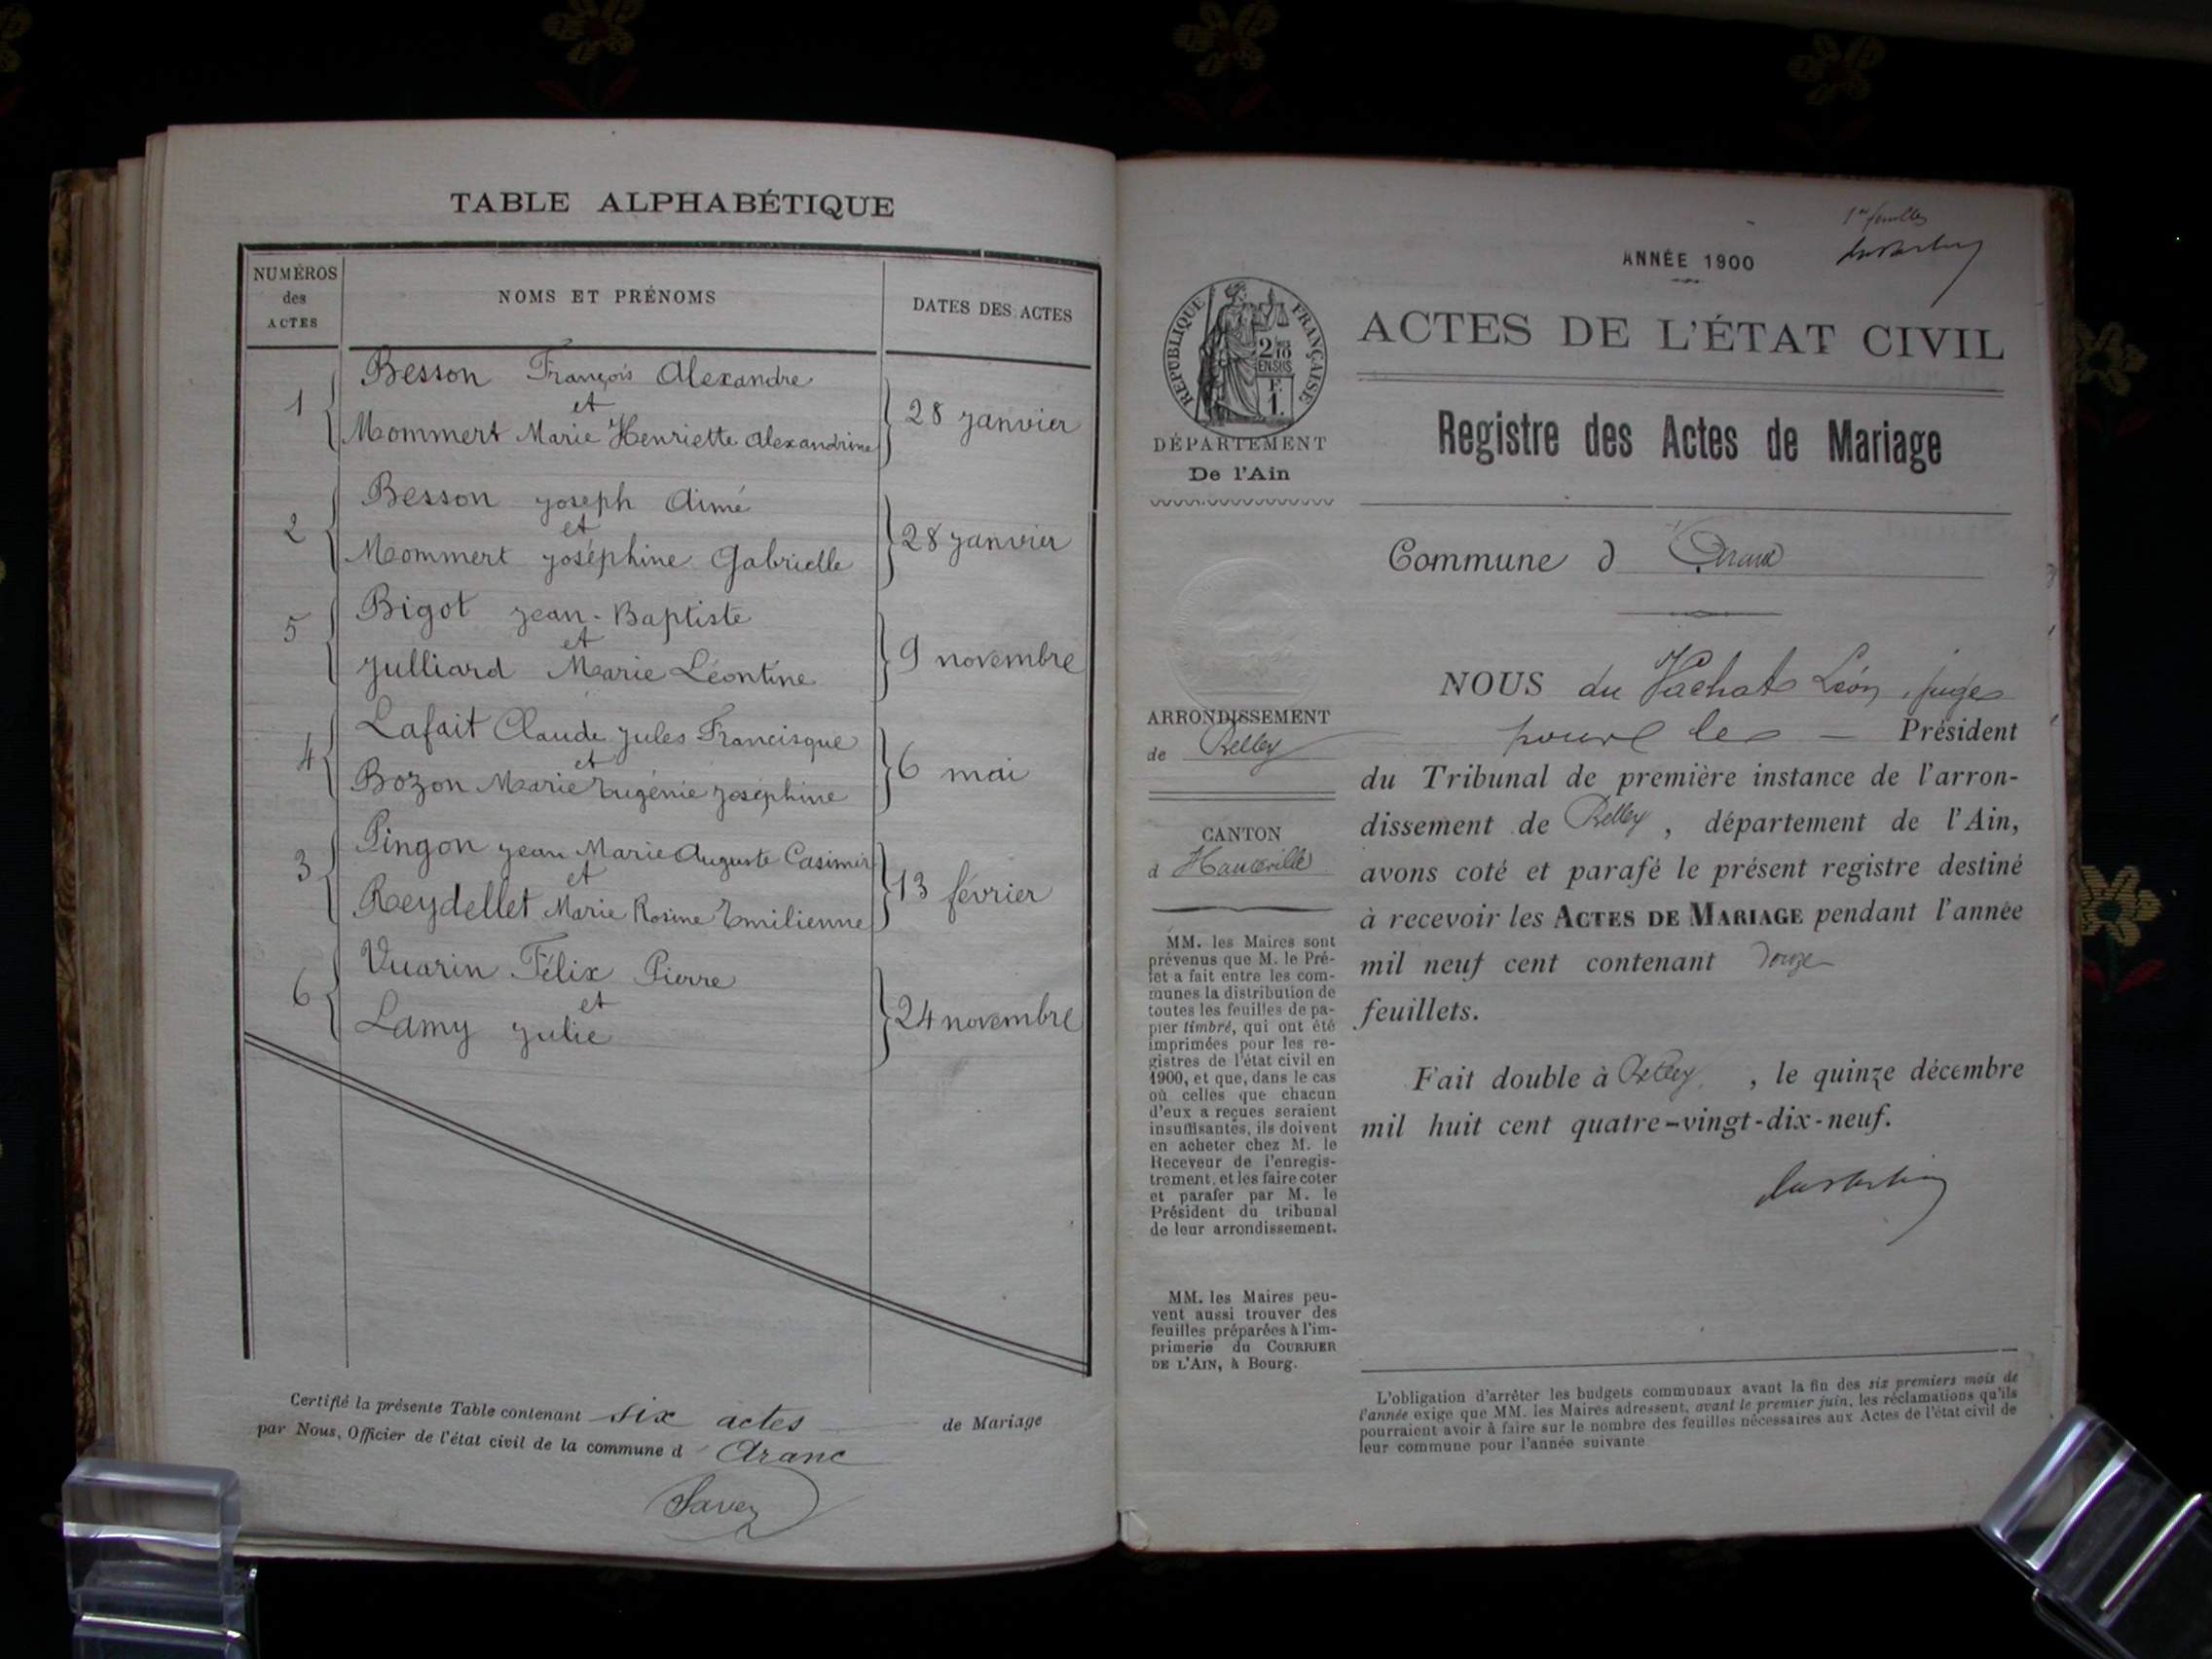 TABLE ALPHABÉTIQUE
NUMÉROS
des
ACTES
NOMS ET PRÉNOMS
DATES DES ACTES
Besson François Alexandre
1 et 28 janvier
Mommert Marie Henriette Alexandrine
Besson Joseph Aimé
2 et 28 janvier
Mommert Joséphine Gabrielle
Bigot Jean-Baptiste
5 et 9 novembre
Julliard Marie Léontine
Lafait Claude Jules Francisque
4 et 6 mai
Bozon Marie Eugénie Joséphine
Pingon Jean Marie Auguste Casimir
3 et 13 février
Reydellet Marie Rosine Emilienne
Vuarin Félix Pierre
6 et 24 novembre
Lamy Julie
Certifié la présente Table contenant six actes de Mariage
par Nous, Officier de l'état civil de la commune d'Aranc
Savey
ANNÉE 1900
RÉPUBLIQUE FRANÇAISE
ACTES DE L'ÉTAT CIVIL
DÉPARTEMENT
De l'Ain
Registre des Actes de Mariage
Commune d'Aranc
ARRONDISSEMENT
de Belley
CANTON
d Hauteville
MM. les Maires sont
prévenus que M. le Pré-
fet a fait entre les com-
munes la distribution de
toutes les feuilles de pa-
pier timbré, qui ont été
imprimées pour les re-
gistres de l'état civil en
1900, et que, dans le cas
où celles que chacun
d'eux a reçues seraient
insuffisantes, ils doivent
en acheter chez M. le
Receveur de l'enregis-
trement, et les faire coter
et parafer par M. le
Président du tribunal
de leur arrondissement.
MM. les Maires peu-
vent aussi trouver des
feuilles préparées à l'im-
primerie du COURRIER
DE L'AIN, à Bourg.
NOUS du Vachat Léon, juge
pour le Président
du Tribunal de première instance de l'arron-
dissement de Belley, département de l'Ain,
avons coté et parafé le présent registre destiné
à recevoir les ACTES DE MARIAGE pendant l'année
mil neuf cent contenant douze
feuillets.
Fait double à Belley, le quinze décembre
mil huit cent quatre-vingt-dix-neuf.
L'obligation d'arrêter les budgets communaux avant la fin des six premiers mois de
l'année exige que MM. les Maires adressent, avant le premier juin, les réclamations qu'ils
pourraient avoir à faire sur le nombre des feuilles nécessaires aux Actes de l'état civil de
leur commune pour l'année suivante